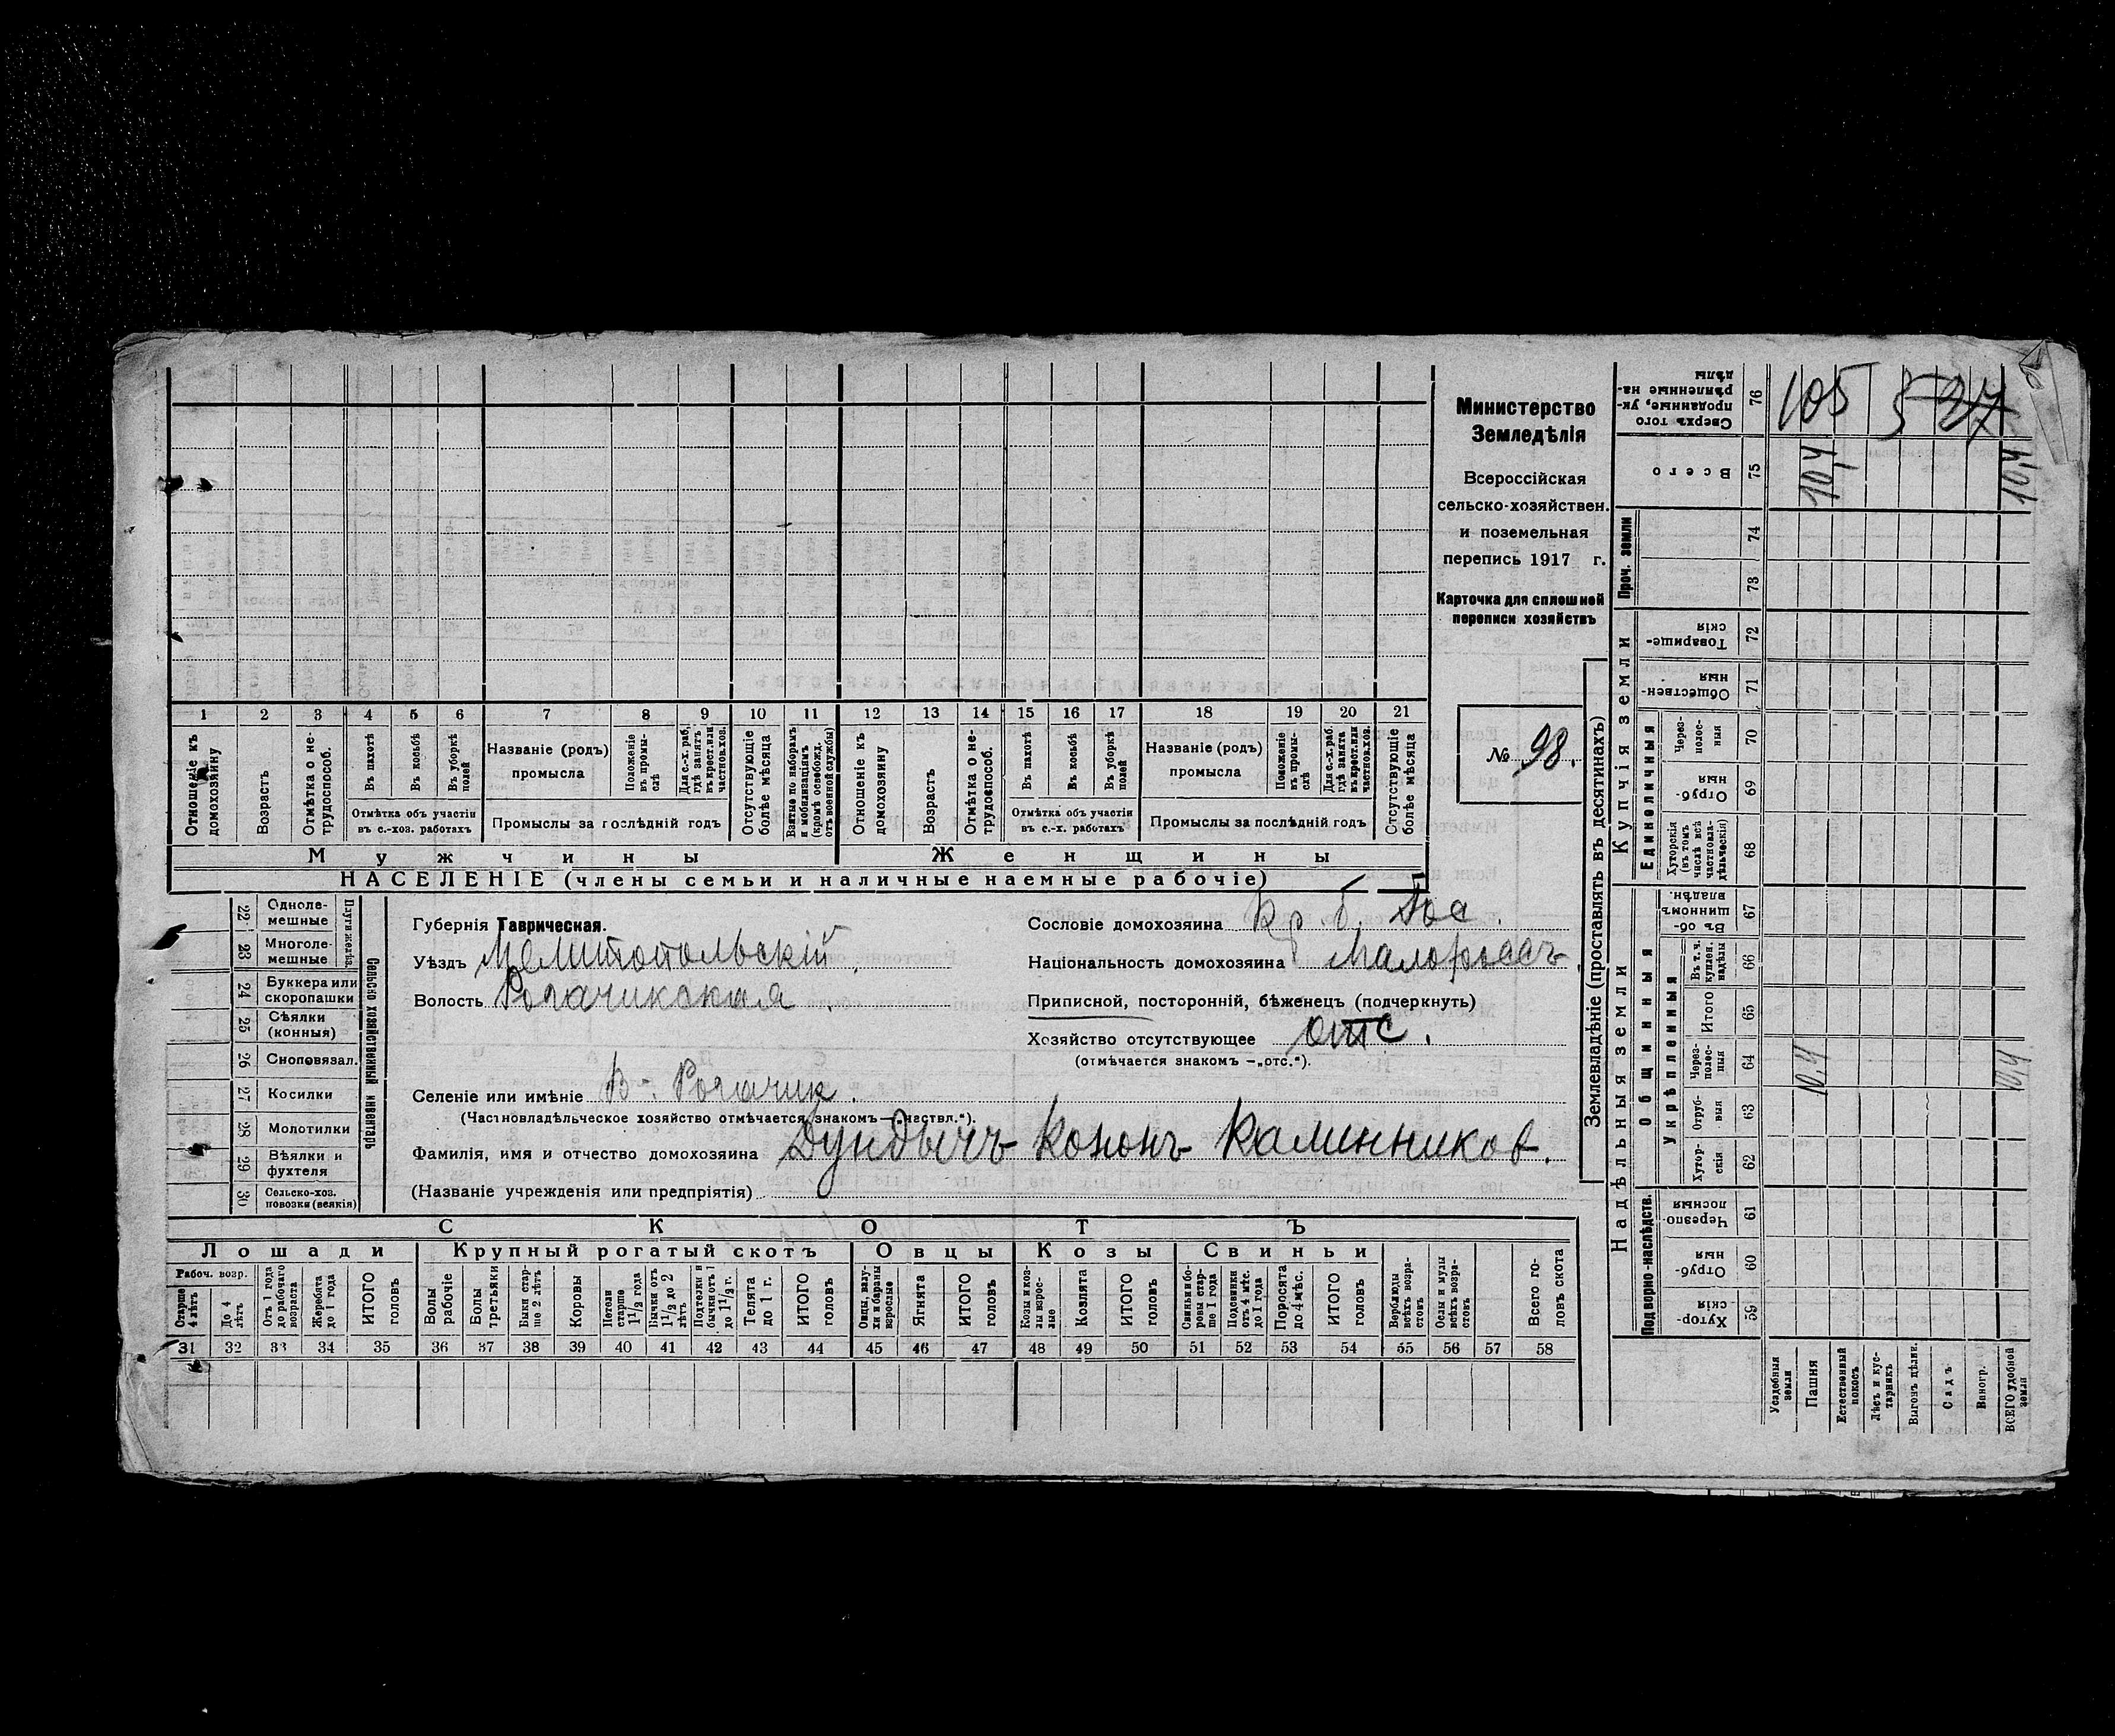 Министерство
Земледѣлія
Всероссійская
сельско-хозяйствен.
и поземельная
перепись 1917 г.
Карточка для сплошной
переписи хозяйствъ
№ 98.
1 2 3 4 5 6 7 8 9 10 11 12 13 14 15 16 17 18 19 20 21
Отношеніе къ домохозяину
Возрастъ
Отмѣтка о нетрудоспособ.
Въ пахотѣ
Въ косьбѣ
Въ уборкѣ полей
Отмѣтка объ участіи въ с.-хоз. работахъ
Названіе (родъ) промысла
Положеніе въ промыслѣ
Для с.-х. раб. гдѣ занятъ въ крест. или частнов. хоз.
Промыслы за послѣдній годъ
Отсутствующіе болѣе мѣсяца
Взятые по наборамъ и мобилизаціямъ (кромѣ освобожд. отъ военной службы)
Отношеніе къ домохозяину
Возрастъ
Отмѣтка о нетрудоспособ.
Въ пахотѣ
Въ косьбѣ
Въ уборкѣ полей
Отмѣтка объ участіи въ с.-х. работахъ
Названіе (родъ) промысла
Положеніе въ промыслѣ
Для с.-х. раб. гдѣ занята въ крест. или частнов. хоз.
Промыслы за послѣдній годъ
Отсутствующіе болѣе мѣсяца
Мужчины Женщины
НАСЕЛЕНІЕ (члены семьи и наличные наемные рабочіе)
Сельско хозяйственный инвентарь
Плуги желѣз.
22 Одноле-мешные
23 Многоле-мешные
24 Буккера или скоропашки
25 Сѣялки (конныя)
26 Сноповязал.
27 Косилки
28 Молотилки
29 Вѣялки и фухтеля
30 Сельско-хоз. повозки (всякія)
Губернія Таврическая.
Уѣздъ Мелитопольскій.
Волость Рогачикская.
Селеніе или имѣніе В-Рогачик.
(Частновладѣльческое хозяйство отмѣчается знакомъ—„частвл.“).
Фамилія, имя и отчество домохозяина Дундычъ Кононъ Калинников.
(Названіе учрежденія или предпріятія)
Сословіе домохозяина Кр. б.
Національность домохозяина Малороссъ
Приписной, посторонній, бѣженецъ (подчеркнуть)
Хозяйство отсутствующее отс.
(отмѣчается знакомъ —„отс.“).
СКОТЪ
Лошади Крупный рогатый скотъ Овцы Козы Свиньи
Рабоч. возр.
Старше 4 лѣтъ
До 4 лѣтъ
Отъ 1 года до рабочаго возраста
Жеребята до 1 года
ИТОГО головъ
Волы рабочіе
Волы третьяки
Быки старше 2 лѣтъ
Коровы
Нетели старше 1 1/2 года
Бычки отъ 1 1/2 до 2 лѣтъ
Подтелки и бычки отъ 1 до 1 1/2 г.
Телята до 1 г.
ИТОГО головъ
Овцы, валухи и бараны взрослые
Ягнята
ИТОГО головъ
Козы и козлы взрослые
Козлята
ИТОГО головъ
Свиньи и боровы старше 1 года
Подсвинки отъ 4 мѣс. до 1 года
Поросята до 4 мѣс.
ИТОГО головъ
Верблюды всѣхъ возрастовъ
Ослы и мулы всѣхъ возрастовъ
Всего головъ скота
31 32 33 34 35 36 37 38 39 40 41 42 43 44 45 46 47 48 49 50 51 52 53 54 55 56 57 58
Землевладѣніе (проставлять въ десятинахъ)
Надѣльныя земли
Купчія земли
Подворно-наслѣдств.
Общинныя
Укрѣпленныя
Единоличныя
Проч. земли
Хуторскія 59
Отрубныя 60
Черезполосныя 61
Хуторскія 62
Отрубныя 63
Черезполосныя 64
Итого 65
Въ т. ч. куплен. надѣлы 66
Въ общинномъ владѣн. 67
Хуторскія (въ томъ числѣ всѣ частновладѣльческія) 68
Отрубныя 69
Черезполосныя 70
Общественныя 71
Товарищескія 72
73
74
Всего 75
Сверхъ того проданные, укрѣпленные надѣлы 76
Усадебныя земли
Пашня
Естественный покосъ
Лѣсъ и кустарникъ
Выгонъ дѣлян.
Садъ
Виногр.
ВСЕГО удобной земли
10,4 10,4
10,4 10,4
105 5 27